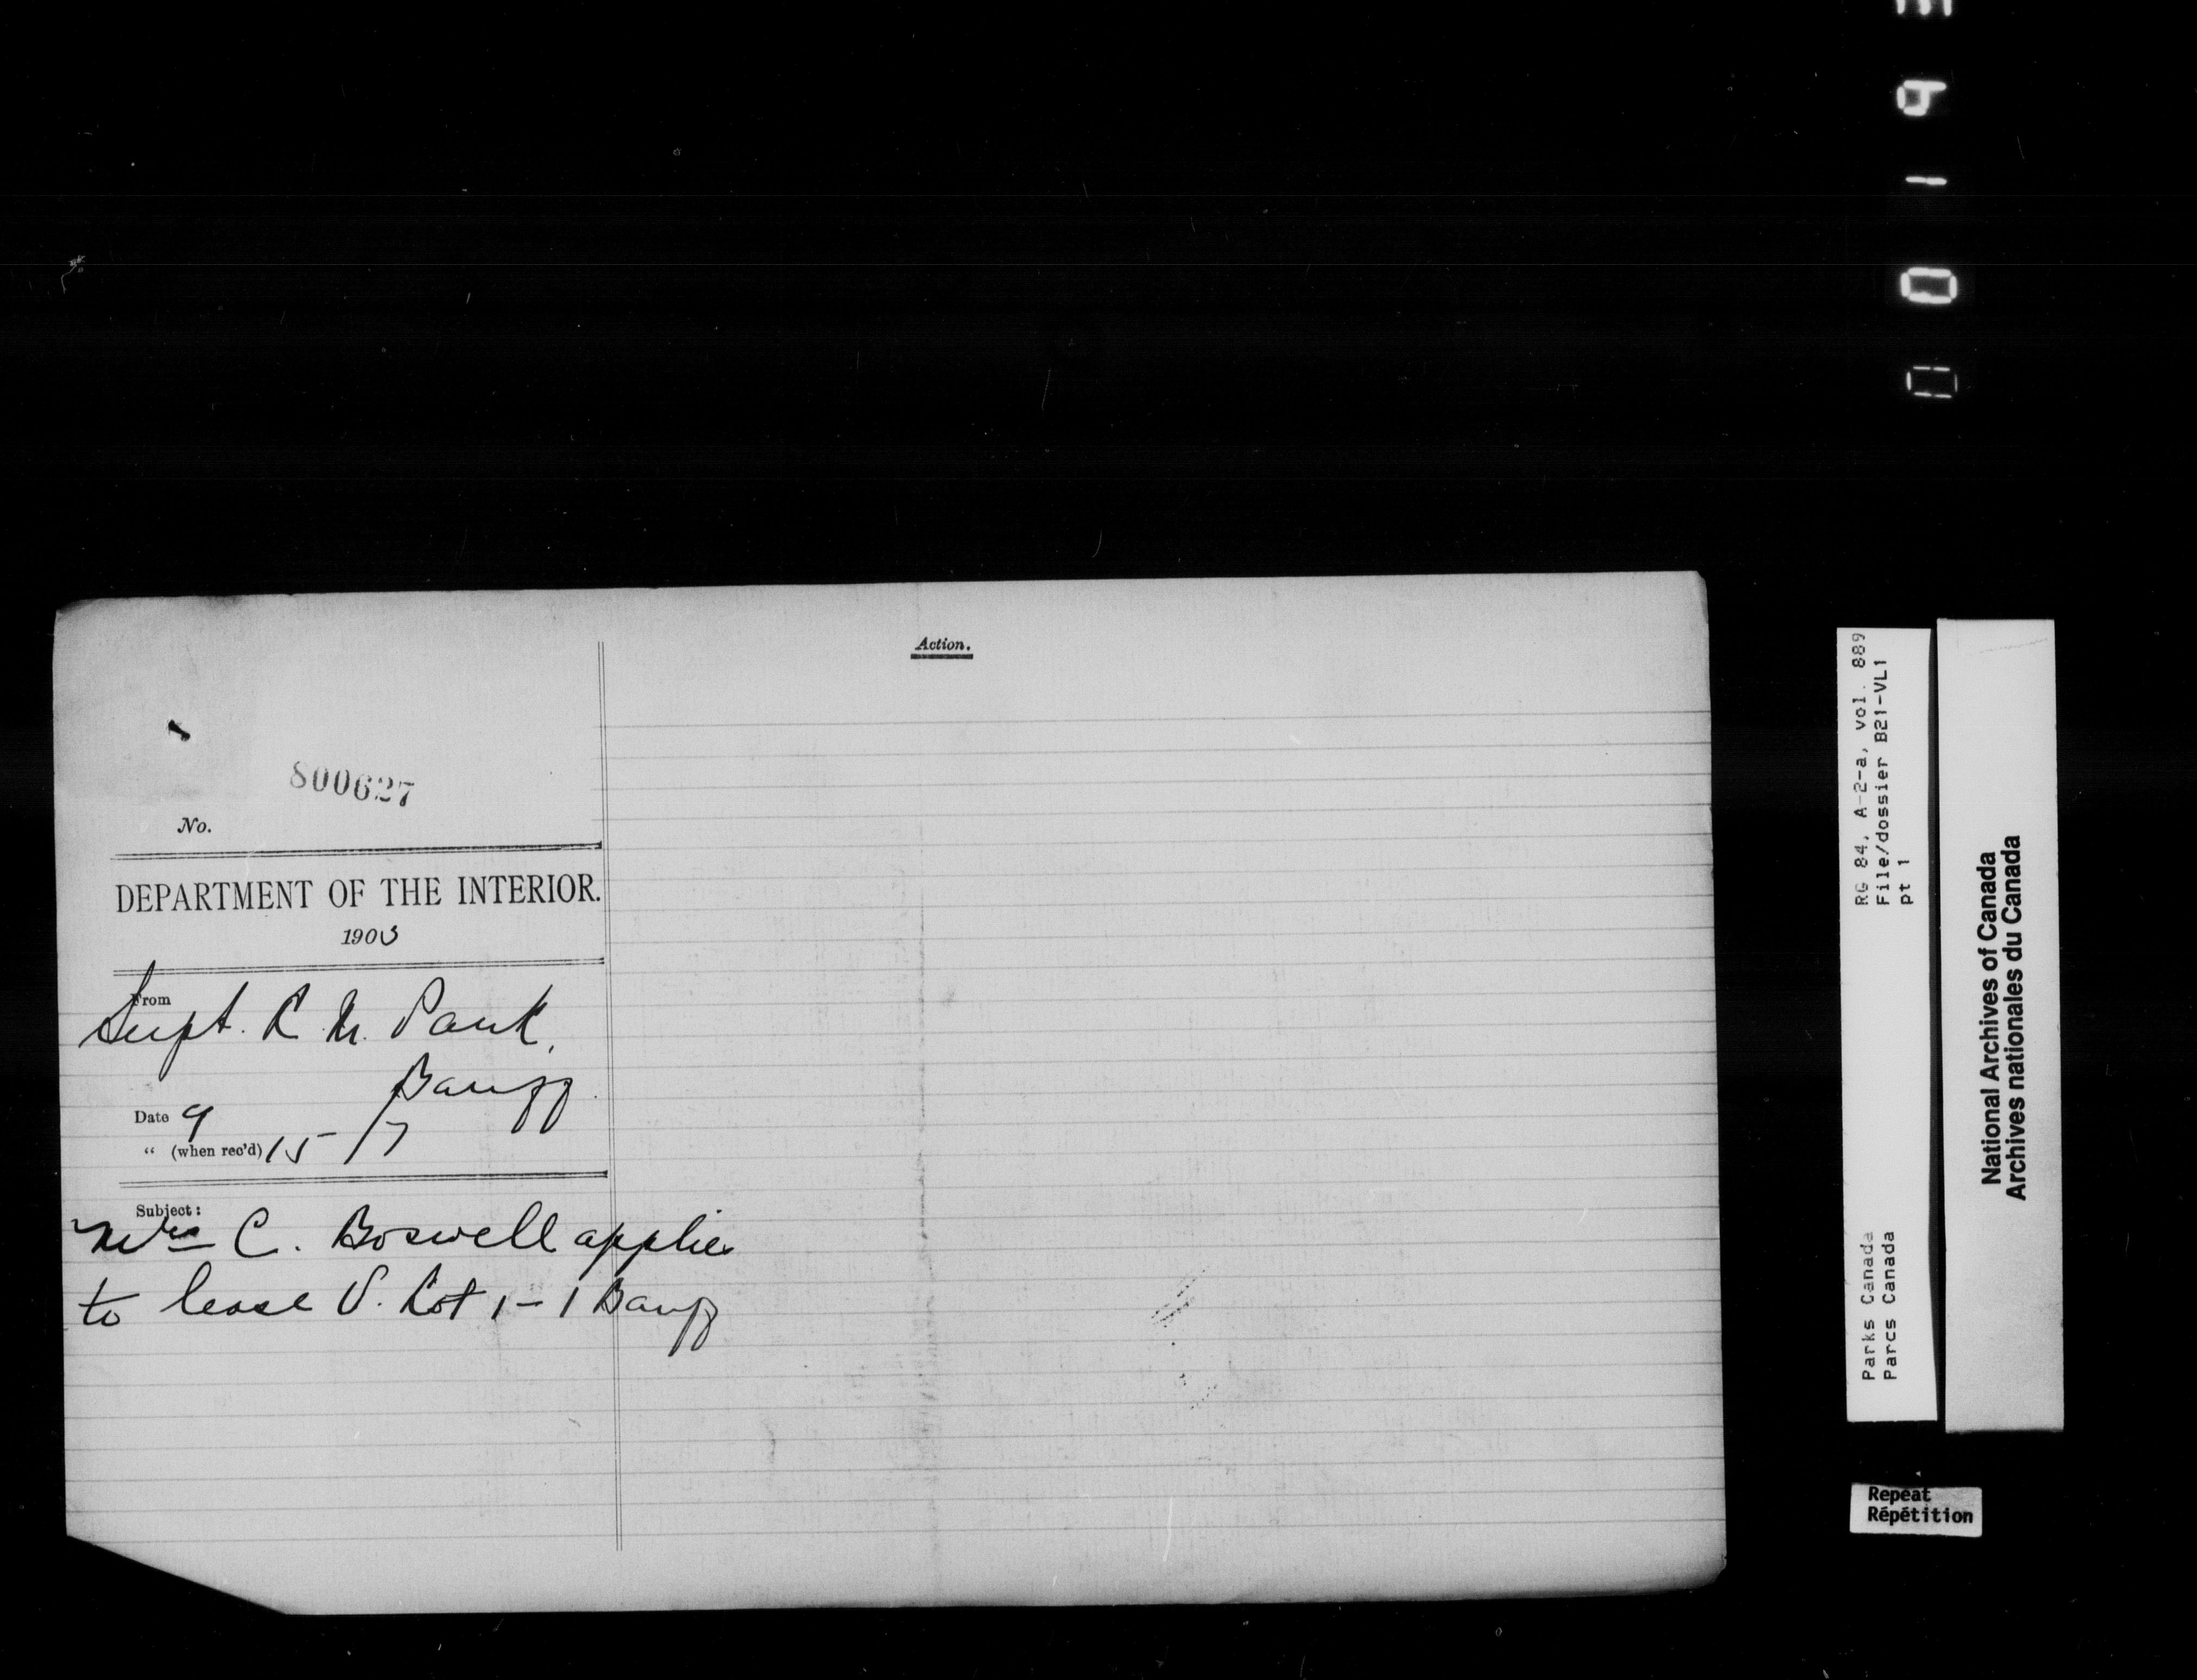 Action.
800627
No.
DEPARTMENT OF THE INTERIOR.
1903
From
Supt. R. M. Park,
Banff.
Date 9
" (when rec'd) 15/7
Subject:
Mrs C. Boswell applies
to lease V. Lot 1-1 Banff
RG 84, A-2-a, vol. 889
File/dossier B21-VL1
pt 1
Parks Canada
Parcs Canada
National Archives of Canada
Archives nationales du Canada
Repeat
Répétition